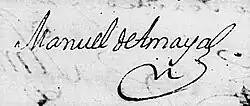 Manuel de Amaya